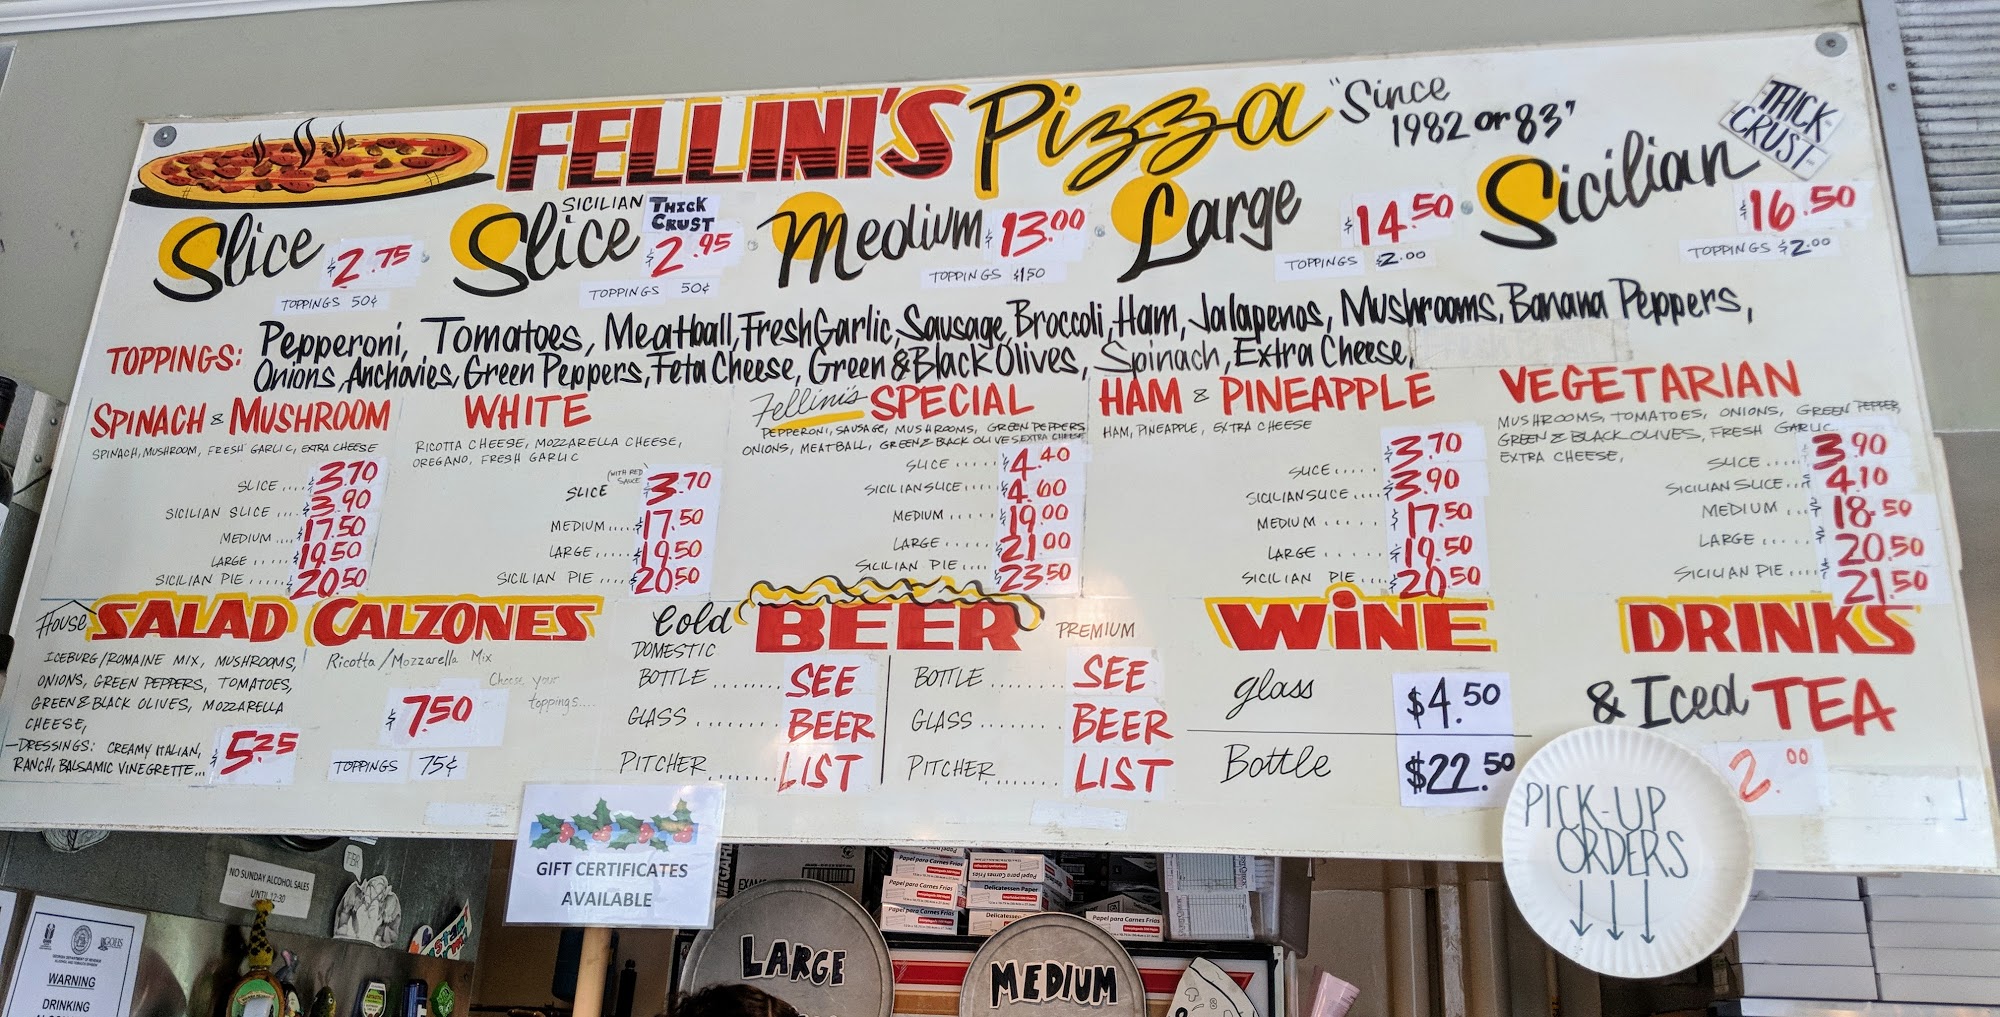 FELLINI'S Pizza "Since
1982 or 83"
THICK
CRUST
Slice $2.75
TOPPINGS 50¢
SICILIAN THICK
CRUST
Slice $2.95
TOPPINGS 50¢
Medium $13.00
TOPPINGS $1.50
Large $14.50
TOPPINGS $2.00
Sicilian $16.50
TOPPINGS $2.00
TOPPINGS: Pepperoni, Tomatoes, Meatball, Fresh Garlic, Sausage, Broccoli, Ham, Jalapenos, Mushrooms, Banana Peppers,
Onions, Anchovies, Green Peppers, Feta Cheese, Green & Black Olives, Spinach, Extra Cheese,
SPINACH & MUSHROOM
SPINACH, MUSHROOM, FRESH GARLIC, EXTRA CHEESE
SLICE .... $3.70
SICILIAN SLICE ... $3.90
MEDIUM .... $17.50
LARGE .... $19.50
SICILIAN PIE ..... $20.50
WHITE
RICOTTA CHEESE, MOZZARELLA CHEESE,
OREGANO, FRESH GARLIC
(WITH RED
SAUCE)
SLICE $3.70
MEDIUM .... $17.50
LARGE ..... $19.50
SICILIAN PIE .... $20.50
Fellini's SPECIAL
PEPPERONI, SAUSAGE, MUSHROOMS, GREEN PEPPERS
ONIONS, MEATBALL, GREEN & BLACK OLIVES, EXTRA CHEESE
SLICE ..... $4.40
SICILIAN SLICE .... $4.60
MEDIUM ..... $19.00
LARGE ..... $21.00
SICILIAN PIE .... $23.50
HAM & PINEAPPLE
HAM, PINEAPPLE, EXTRA CHEESE
SLICE ..... $3.70
SICILIAN SLICE .... $3.90
MEDIUM ..... $17.50
LARGE ..... $19.50
SICILIAN PIE .... $20.50
VEGETARIAN
MUSHROOMS, TOMATOES, ONIONS, GREEN PEPPER,
GREEN & BLACK OLIVES, FRESH GARLIC
EXTRA CHEESE,
SLICE .... $3.90
SICILIAN SLICE .... $4.10
MEDIUM .... $18.50
LARGE .... $20.50
SICILIAN PIE .... $21.50
House SALAD
ICEBURG/ROMAINE MIX, MUSHROOMS,
ONIONS, GREEN PEPPERS, TOMATOES,
GREEN & BLACK OLIVES, MOZZARELLA
CHEESE,
—DRESSINGS: CREAMY ITALIAN,
RANCH, BALSAMIC VINEGRETTE... $5.25
CALZONES
Ricotta/Mozzarella Mix
Choose your
toppings....
$7.50
TOPPINGS 75¢
Cold BEER
DOMESTIC
BOTTLE ........ SEE
GLASS ........ BEER
PITCHER ........ LIST
PREMIUM
BOTTLE ........ SEE
GLASS ........ BEER
PITCHER ........ LIST
WiNE
glass $4.50
Bottle $22.50
DRINKS
& Iced TEA
2.00
PICK-UP
ORDERS
GIFT CERTIFICATES
AVAILABLE
NO SUNDAY ALCOHOL SALES
UNTIL 12:30
PBR
WARNING
DRINKING
LARGE
MEDIUM
Papel para Carnes Frias
Delicatessen Paper
Papel para Carnes Frias
Delicatessen Paper
Papel para Carnes Frias
Papel para Carnes Frias